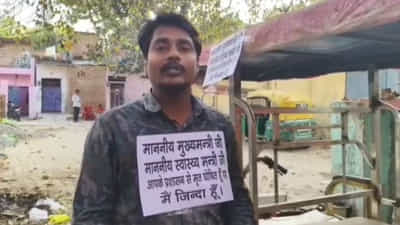 माननीय मुख्यमन्त्री जी
माननीय स्वास्थ्य मन्त्री जी
आपके प्रशासन से मृत घोषित हूँ
मैं जिन्दा हूँ।